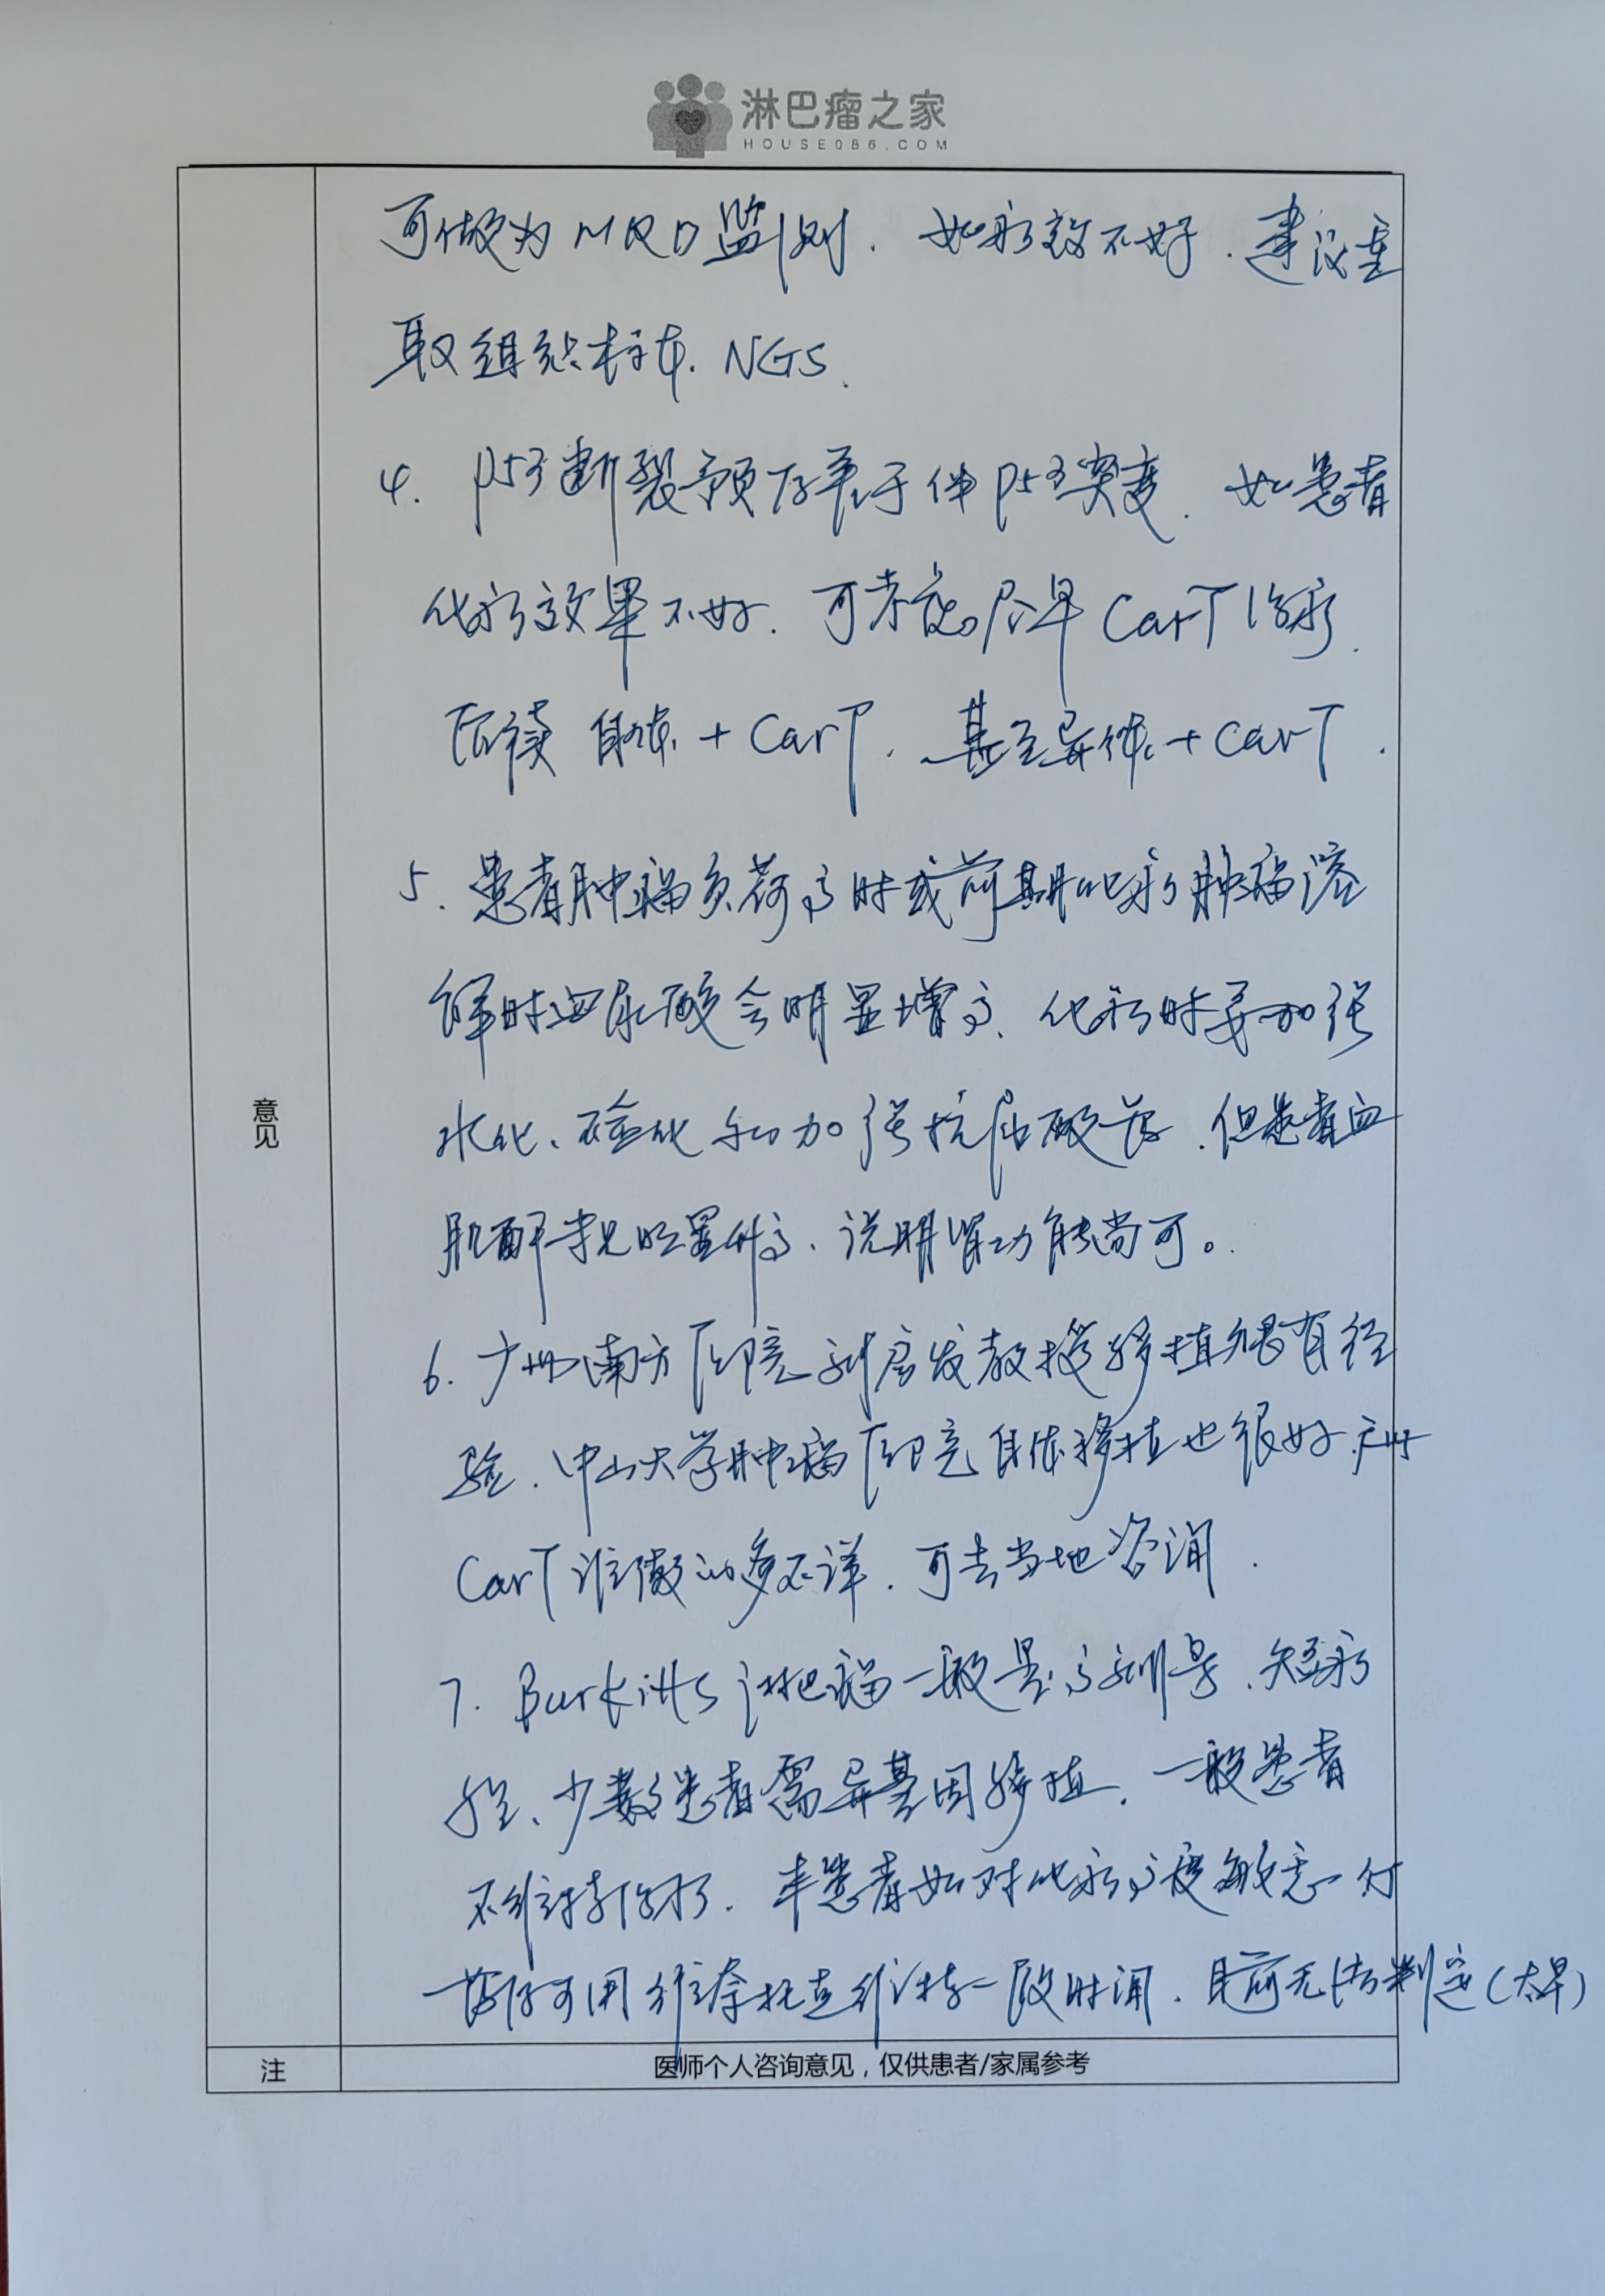 淋巴瘤之家
HOUSE086.COM
可做为MRD监测. 如疗效不好. 建议重
取组织标本. NGS.
4. P53断裂预后等于伴P53突变. 如患者
化疗效果不好. 可考虑尽早CarT治疗.
后续 自体+CarT. 甚至异体+CarT.
5. 患者肿瘤负荷高时或前期化疗肿瘤溶
解时血尿酸会明显增高、化疗时要加强
水化、碱化和加强抗尿酸药. 但患者血
肌酐未见明显升高、说明肾功能尚可。
6. 广州南方医院 教授移植很有经
验. 中山大学肿瘤医院自体移植也很好.广州
CarT谁做的多不详. 可去当地咨询.
7. Burkitts淋巴瘤一般是高剂量、短疗
程、少数患者需异基因移植. 一般患者
不维持治疗. 本患者如对化疗高度敏感
可用维奈托克维持一段时间. 目前无法判定(太早)
意见
注
医师个人咨询意见，仅供患者/家属参考